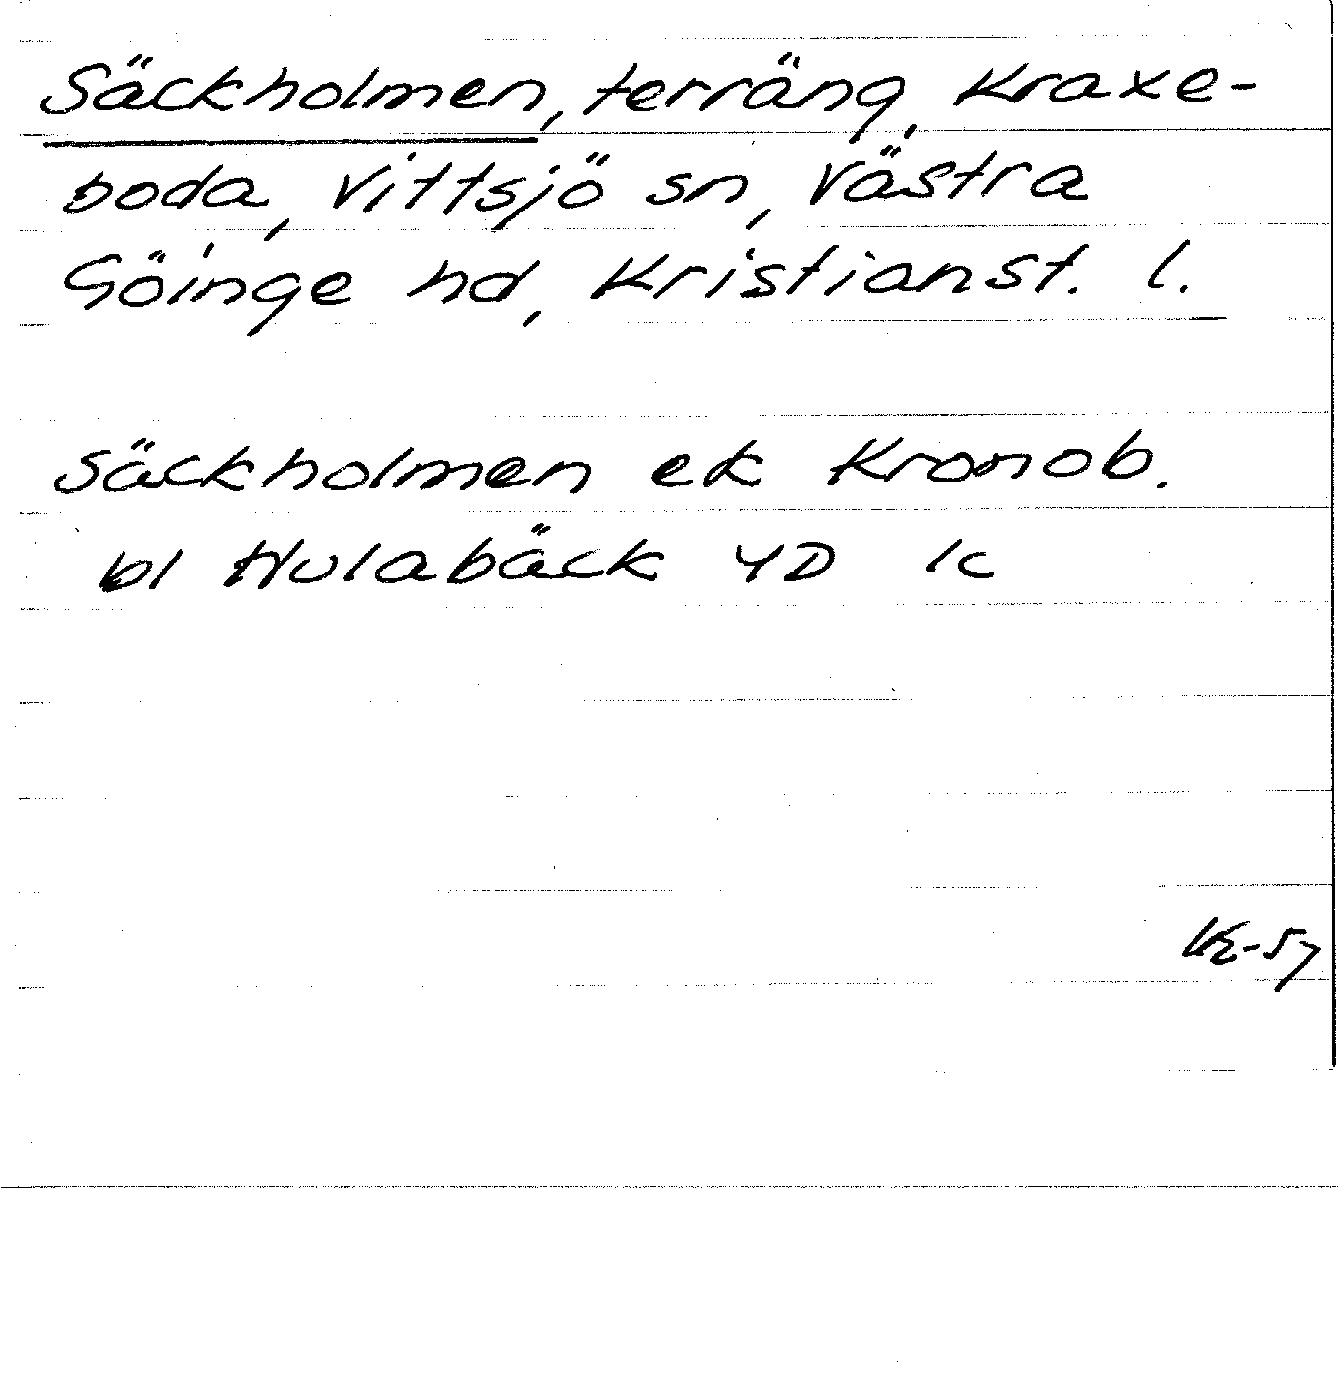 Säckholmen, terräng, Kraxe-
boda, Vittsjö sn, Västra
Göinge hd, Kristianst. l.
Säckholmen ek Kronob.
bl Hulabäck 4D 1c